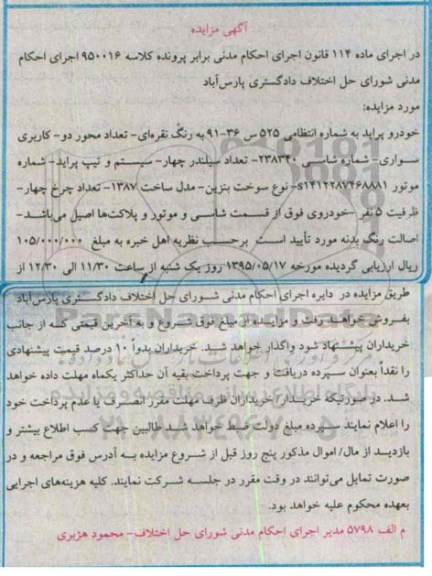 آگهی مزایده
در اجرای ماده ۱۱۴ قانون اجرای احکام مدنی برابر پرونده کلاسه ۹۵۰۰۱۶ اجرای احکام
مدنی شورای حل اختلاف دادگستری پارس‌آباد
مورد مزایده:
خودرو پراید به شماره انتظامی ۵۲۵ س ۳۶-۹۱ به رنگ نقره‌ای- تعداد محور دو- کاربری
سواری- شماره شاسی ۲۳۸۳۴۰- تعداد سیلندر چهار- سیستم و تیپ پراید- شماره
موتور s۱۴۱۲۲۸۷۴۶۸۸۸۱- نوع سوخت بنزین- مدل ساخت ۱۳۸۷- تعداد چرخ چهار-
ظرفیت ۵ نفر -خودروی فوق از قسمت شاسی و موتور و پلاکت‌ها اصیل می‌باشد-
اصالت رنگ بدنه مورد تأیید است برحسب نظریه اهل خبره به مبلغ ۱۰۵/۰۰۰/۰۰۰
ریال ارزیابی گردیده مورخه ۱۳۹۵/۰۵/۱۷ روز یک شنبه از ساعت ۱۱/۳۰ الی ۱۲/۳۰ از
طریق مزایده در دایره اجرای احکام مدنی شورای حل اختلاف دادگستری پارس‌آباد
بفروش خواهد رفت و مزایده از مبلغ فوق شروع و به آخرین قیمتی که از جانب
خریداران پیشنهاد شود واگذار خواهد شد. خریداران بدواً ۱۰ درصد قیمت پیشنهادی
را نقداً بعنوان سپرده دریافت و جهت پرداخت بقیه آن حداکثر یکماه مهلت داده خواهد
شد. در صورتیکه خریدار/ خریداران ظرف مهلت مقرر انصراف یا عدم پرداخت خود
را اعلام نمایند سپرده مبلغ دولت ضبط خواهد شد طالبین جهت کسب اطلاع بیشتر و
بازدید از مال/ اموال مذکور پنج روز قبل از شروع مزایده به آدرس فوق مراجعه و در
صورت تمایل می‌توانند در وقت مقرر در جلسه شرکت نمایند. کلیه هزینه‌های اجرایی
بعهده محکوم علیه خواهد بود.
م الف ۵۷۹۸ مدیر اجرای احکام مدنی شورای حل اختلاف- محمود هژبری
ParsNamadData